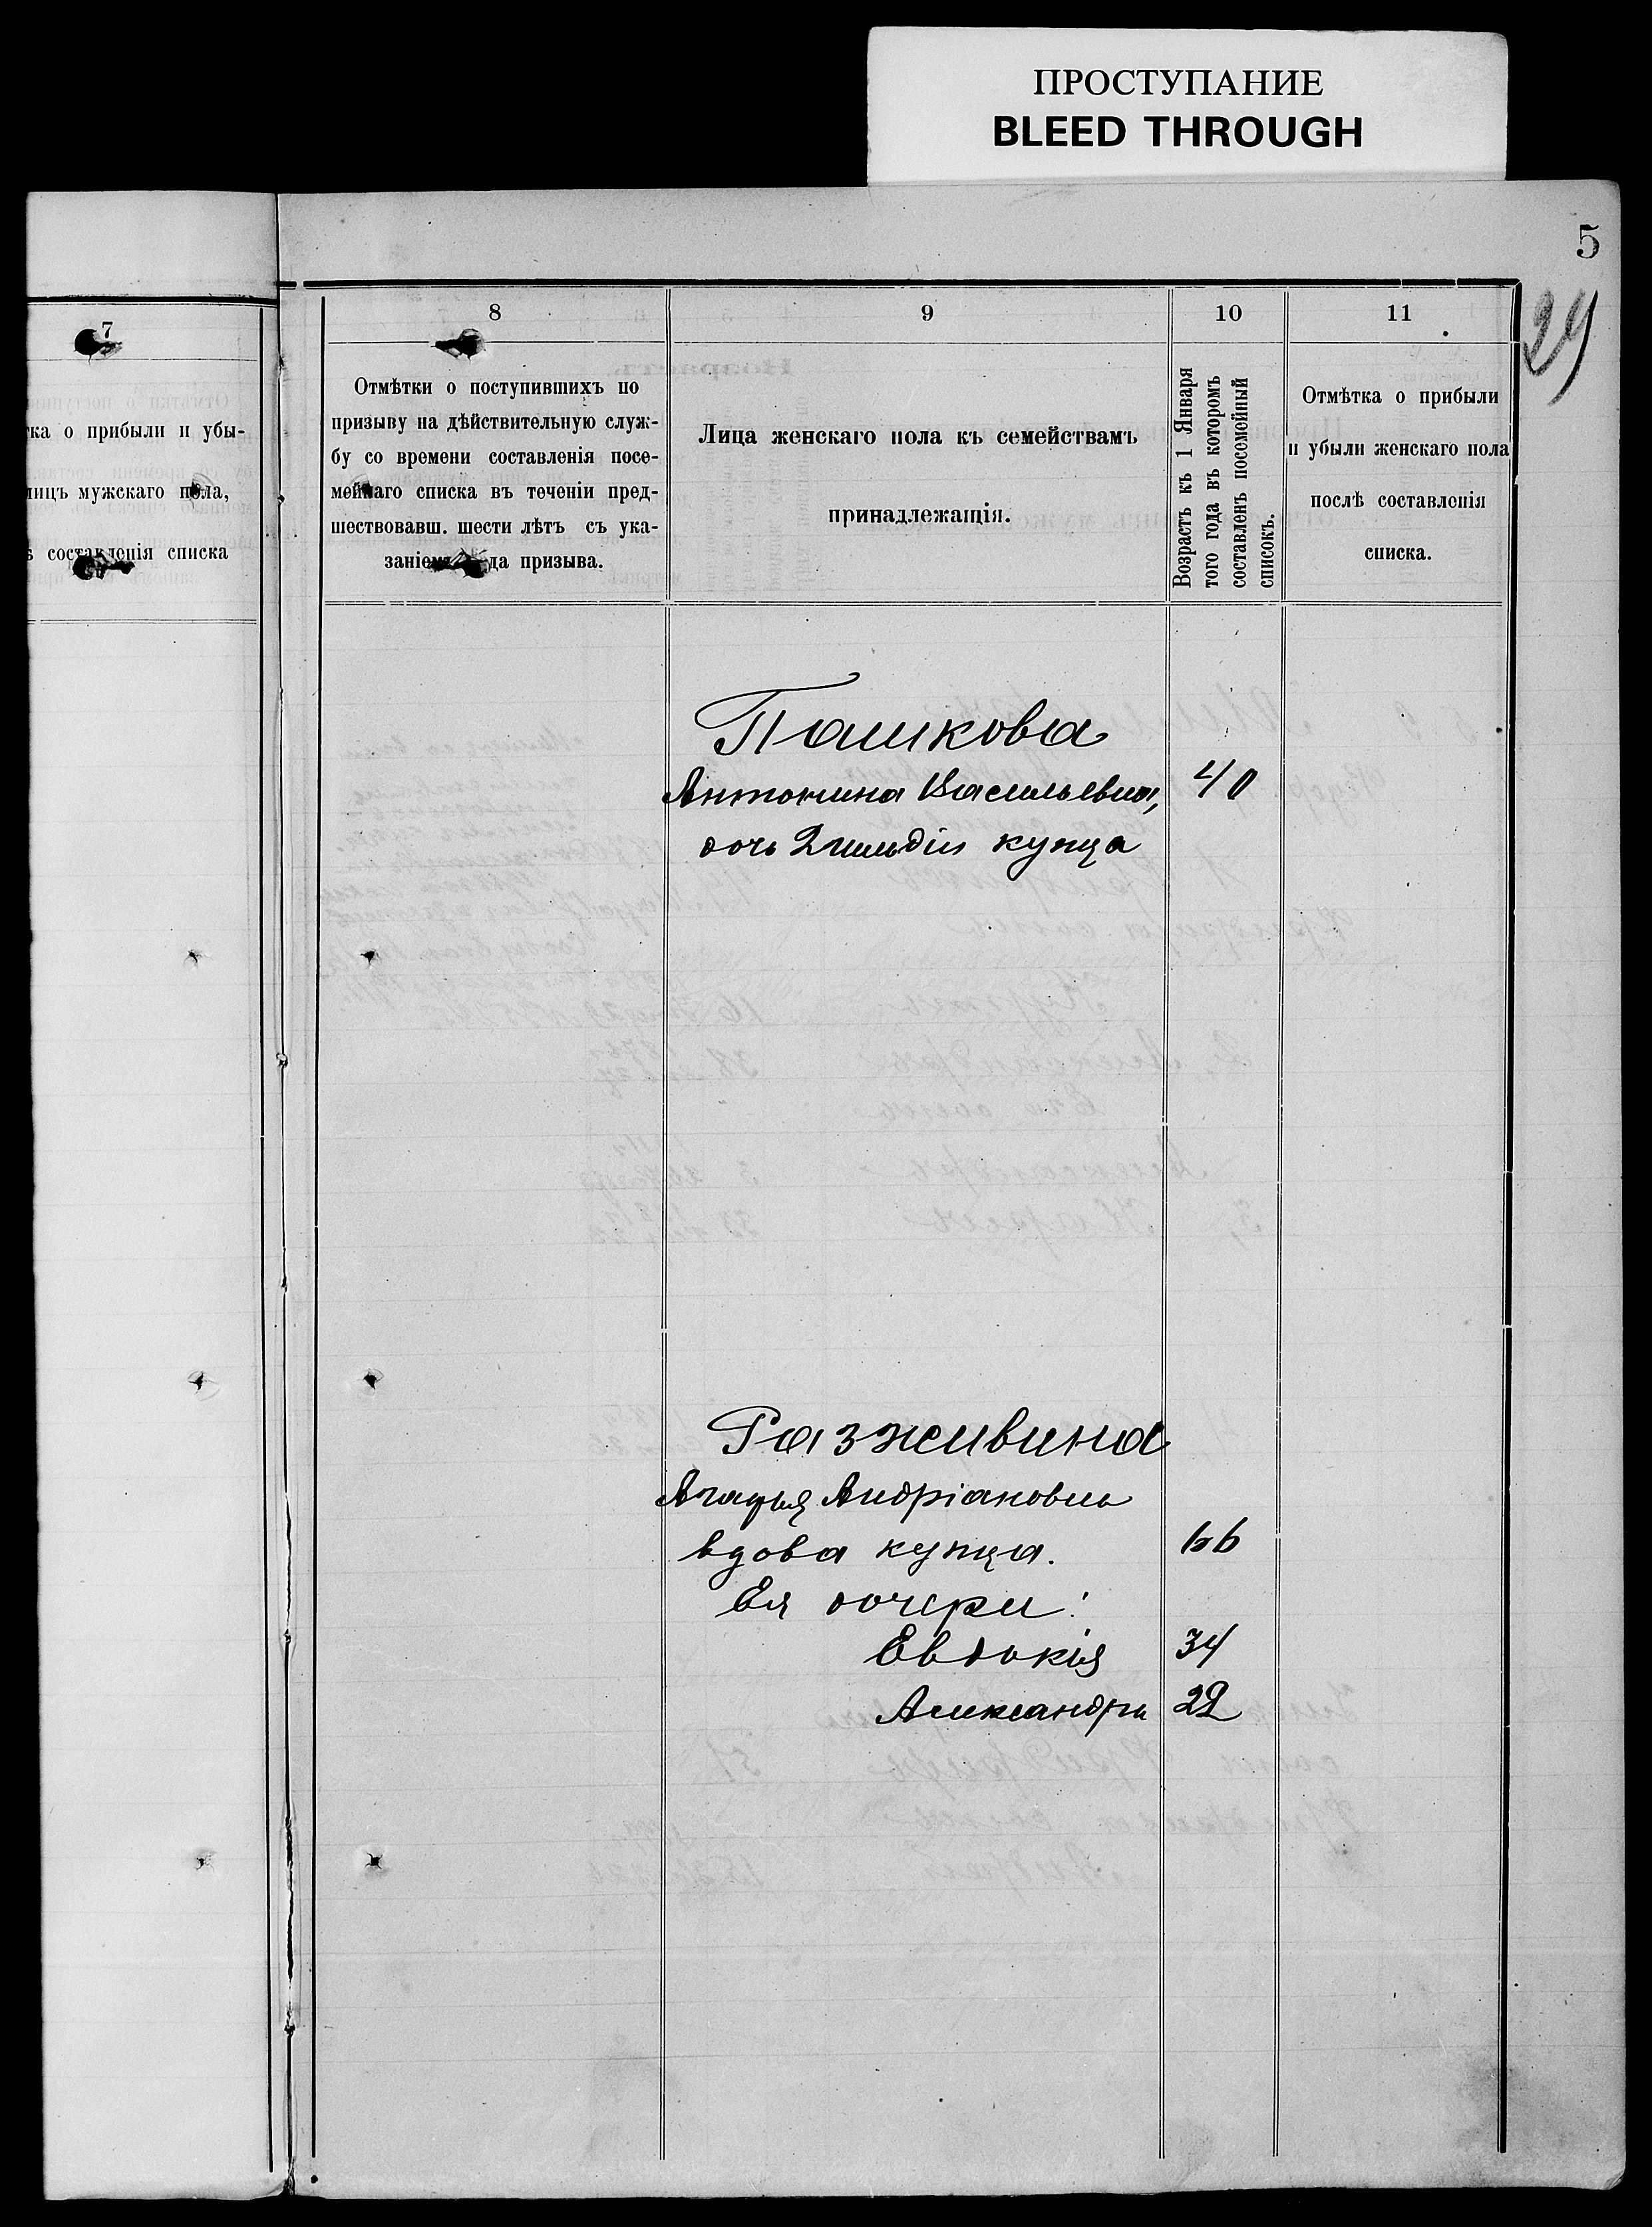 ПРОСТУПАНИЕ
BLEED THROUGH
5
29
7
о прибыли и убы-
мужскаго пола,
составленія списка
8
Отмѣтки о поступившихъ по
призыву на дѣйствительную служ-
бу со времени составленія посе-
мейнаго списка въ теченіи пред-
шествовавш. шести лѣтъ съ ука-
призыва.
9
Лица женскаго пола къ семействамъ
принадлежащія.
10
Возрастъ къ 1 Января
того года въ которомъ
составленъ посемейный
списокъ.
11
Отмѣтка о прибыли
и убыли женскаго пола
послѣ составленія
списка.
Пашкова
Антонина Васильевна, 40
дочь 2 гильдіи купца
Разживина
Агафья Андріановна
вдова купца. 66
Ея дочери:
Евдокія 34
Александра 22